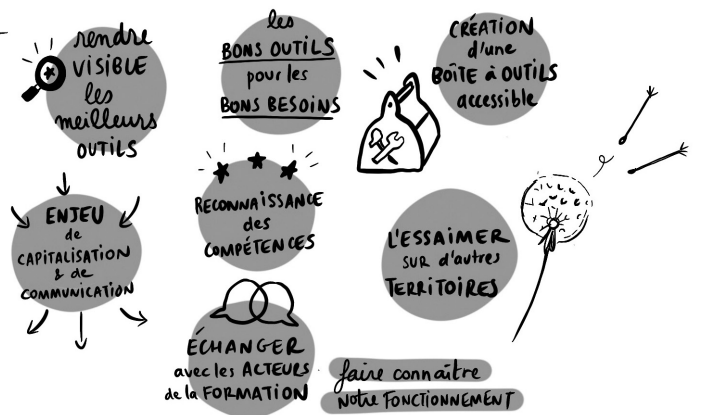 rendre
VISIBLE
les
meilleurs
OUTILS
les
BONS OUTILS
pour les
BONS BESOINS
CRÉATION
d'une
BOÎTE à OUTILS
accessible
ENJEU
de
CAPITALISATION
& de
COMMUNICATION
RECONNAISSANCE
des
COMPÉTENCES
L'ESSAIMER
SUR d'autres
TERRITOIRES
ÉCHANGER
avec les ACTEURS
de la FORMATION
faire connaître
Notre FONCTIONNEMENT